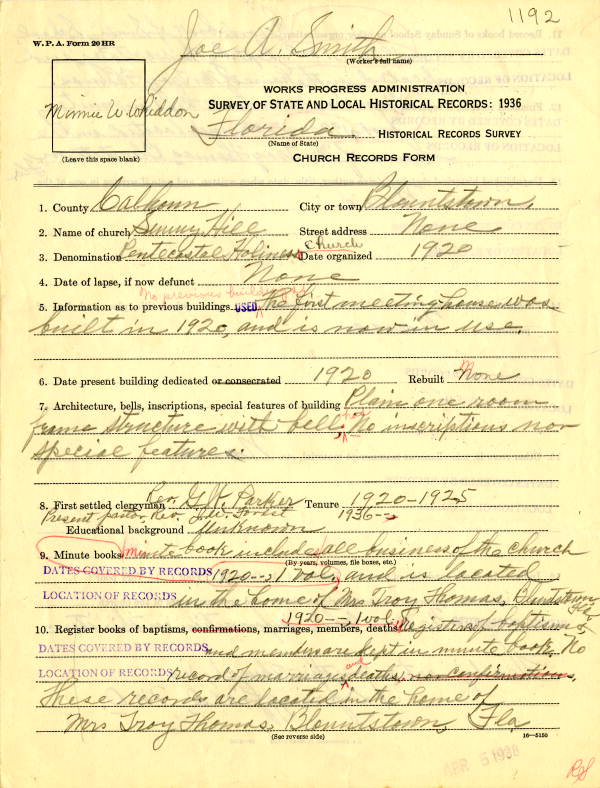 1192
W. P. A. Form 20 HR
Joe A. Smith
(Worker's full name)
Minnie W. Whiddon
(Leave this space blank)
WORKS PROGRESS ADMINISTRATION
SURVEY OF STATE AND LOCAL HISTORICAL RECORDS: 1936
Florida HISTORICAL RECORDS SURVEY
(Name of State)
CHURCH RECORDS FORM
1. County Calhoun City or town Blountstown,
2. Name of church Sunny Hill Street address None
3. Denomination Pentecostal Holiness Church Date organized 1920
4. Date of lapse, if now defunct None
No previous buildings
5. Information as to previous buildings USED The first meeting house was
built in 1920, and is now in use.
6. Date present building dedicated or consecrated 1920 Rebuilt None
7. Architecture, bells, inscriptions, special features of building Plain one room
frame structure with bell; No inscriptions nor
special features.
8. First settled clergyman Rev. G.W. Parker Tenure 1920-1925
Present pastor, Rev. 1936--
Educational background Unknown
9. Minute books Minute book includes all business of the church
(By years, volumes, file boxes, etc.)
DATES COVERED BY RECORDS 1920--, 1 vol. and is located
LOCATION OF RECORDS in the home of Mrs Troy Thomas, Blountstown, Fla
1920--, 1 vol.
10. Register books of baptisms, confirmations, marriages, members, deaths Register of baptisms
DATES COVERED BY RECORDS and members are kept in minute book. No
LOCATION OF RECORDS record of marriages and deaths, nor confirmations,
These records are located in the home of
Mrs Troy Thomas, Blountstown, Fla.
(See reverse side)
16-5150
APR 5 1938